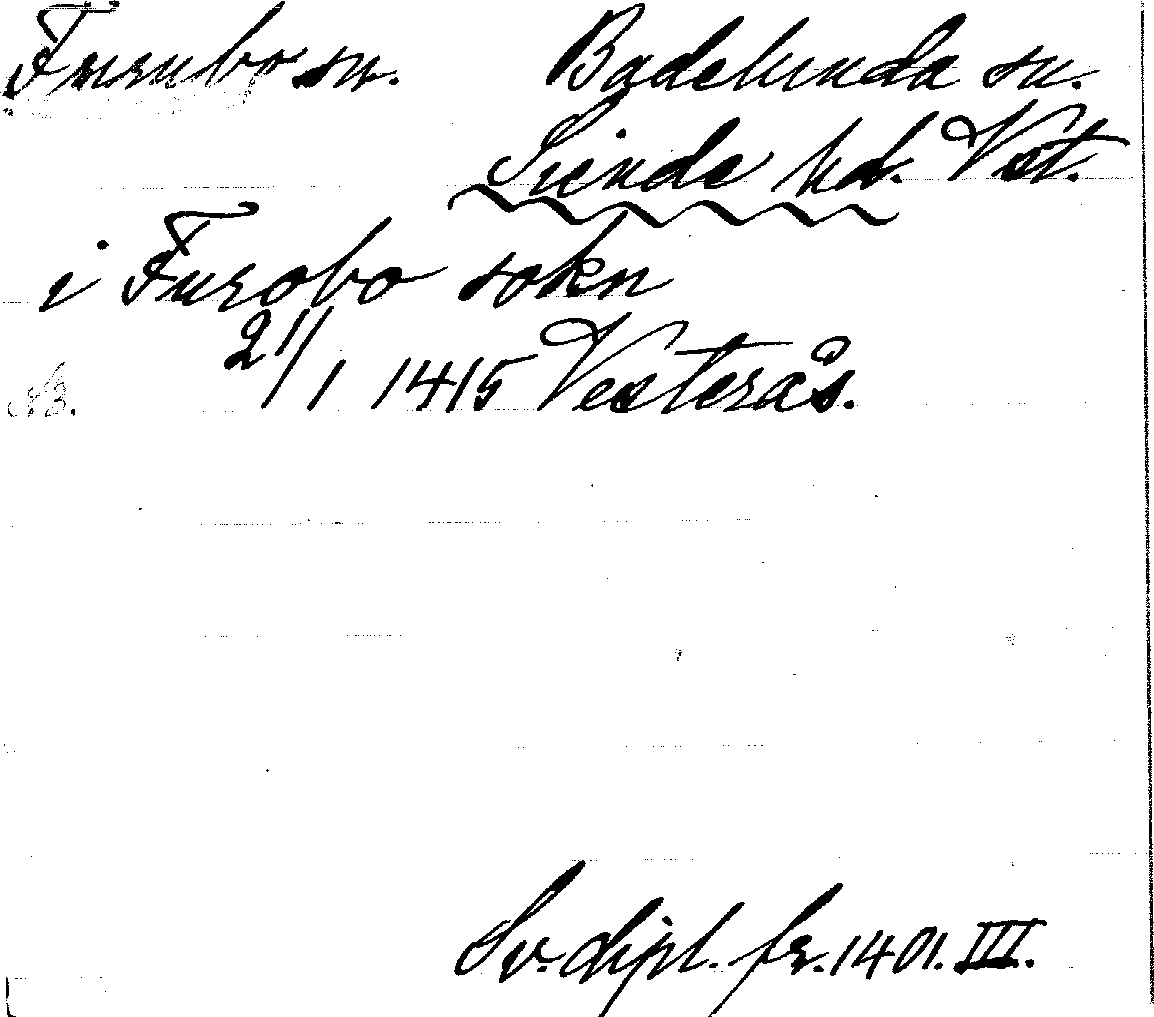 Furubo sn. Badelunda sn.
Siende hd. Vst.
i Furobo sokn
21/1 1415 Vesterås.
N3.
Sv. dipl. fr. 1401. III.